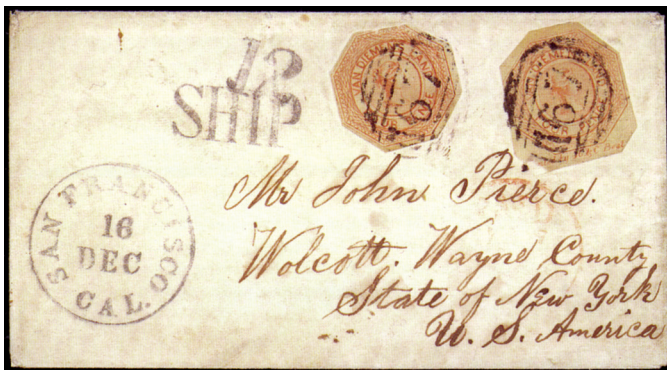 12
SHIP
VAN DIEMEN'S LAND
FOUR
SAN FRANCISCO
16
DEC
CAL.
Mr John Pierce.
Wolcott. Wayne County
State of New York
U. S. America